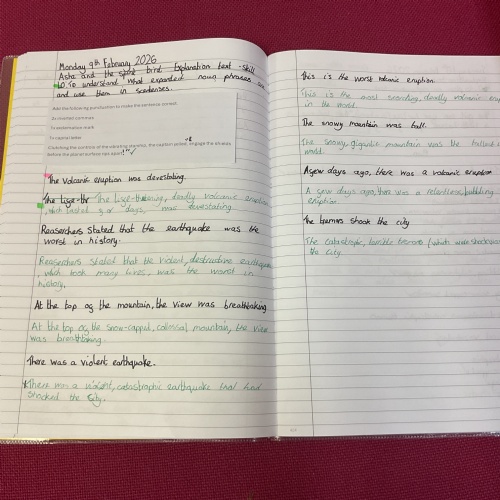 Monday 9th February 2026
Asha and the spirit bird Explanation text - skill
LO: To understand what expanded noun phrases are
and use them in sentences.
Add the following punctuation to make the sentence correct.
2x inverted commas
1x exclamation mark
1x capital letter
Clutching the controls of the vibrating
Before the planet surface rips apart!"
The volcanic eruption was devestating.
The lige-thr The lige-threatening, deadly volcanic eruption
, which lasted 3 days, was devestating.
Reaserchers stated that the earthquake was the
worst in history.
Reaserchers stated that the violent, destructive earthquake
, which took many lives, was the worst in
history.
At the top og the mountain, the view was breathtaking
At the top og the snow-capped, colossal mountain, the view
was breathtaking.
There was a violent earthquake.
There was a violent, catastrophic earthquake that had
shocked the city.
This is the worst volcanic eruption.
This is the most scorching, deadly volcanic
in the world.
The snowy mountain was tall.
The snowy, gigantic mountain was the tallest
world.
A gew days ago, there was a volcanic eruption
A gew days ago, there was a relentless, bubbling
eruption.
The tremors shook the city
The catastrophic, terrible tremors
the city.